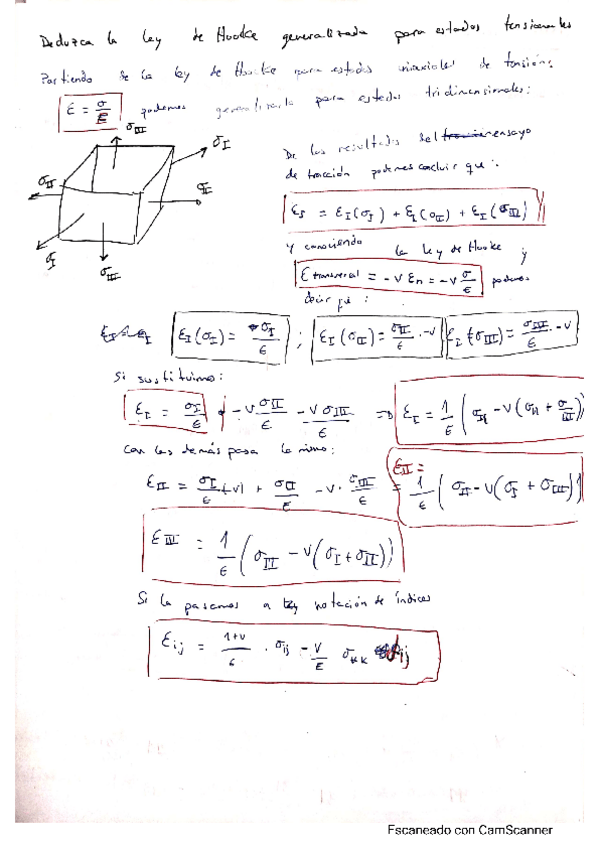 Deduzca la ley de Hooke generalizada para estados tensionales
Partiendo de la ley de Hooke para estados uniaxiales de tensión:
ε = σ/E podemos generalizarla para estados tridimensionales:
σIII
σI
σII
σII
σI
σIII
De los resultados del ensayo
de tracción podemos concluir que:
εI = εI(σI) + εI(σII) + εI(σIII)
y conociendo la ley de Hooke y
ε transversal = -ν εn = -ν σ/E podemos
decir que:
εI(σI) = σI/E ; εI(σII) = σII/E · -ν εI(σIII) = σIII/E · -ν
Si sustituimos:
εI = σI/E - ν σII/E - ν σIII/E => εI = 1/E (σI - ν(σII + σIII))
Con los demás pasa lo mismo:
εII = σI/E (-ν) + σII/E - ν · σIII/E = εII = 1/E (σII - ν(σI + σIII))
εIII = 1/E (σIII - ν(σI + σII))
Si lo pasamos a notación de índices
εij = 1+ν/E · σij - ν/E σkk δij
Escaneado con CamScanner